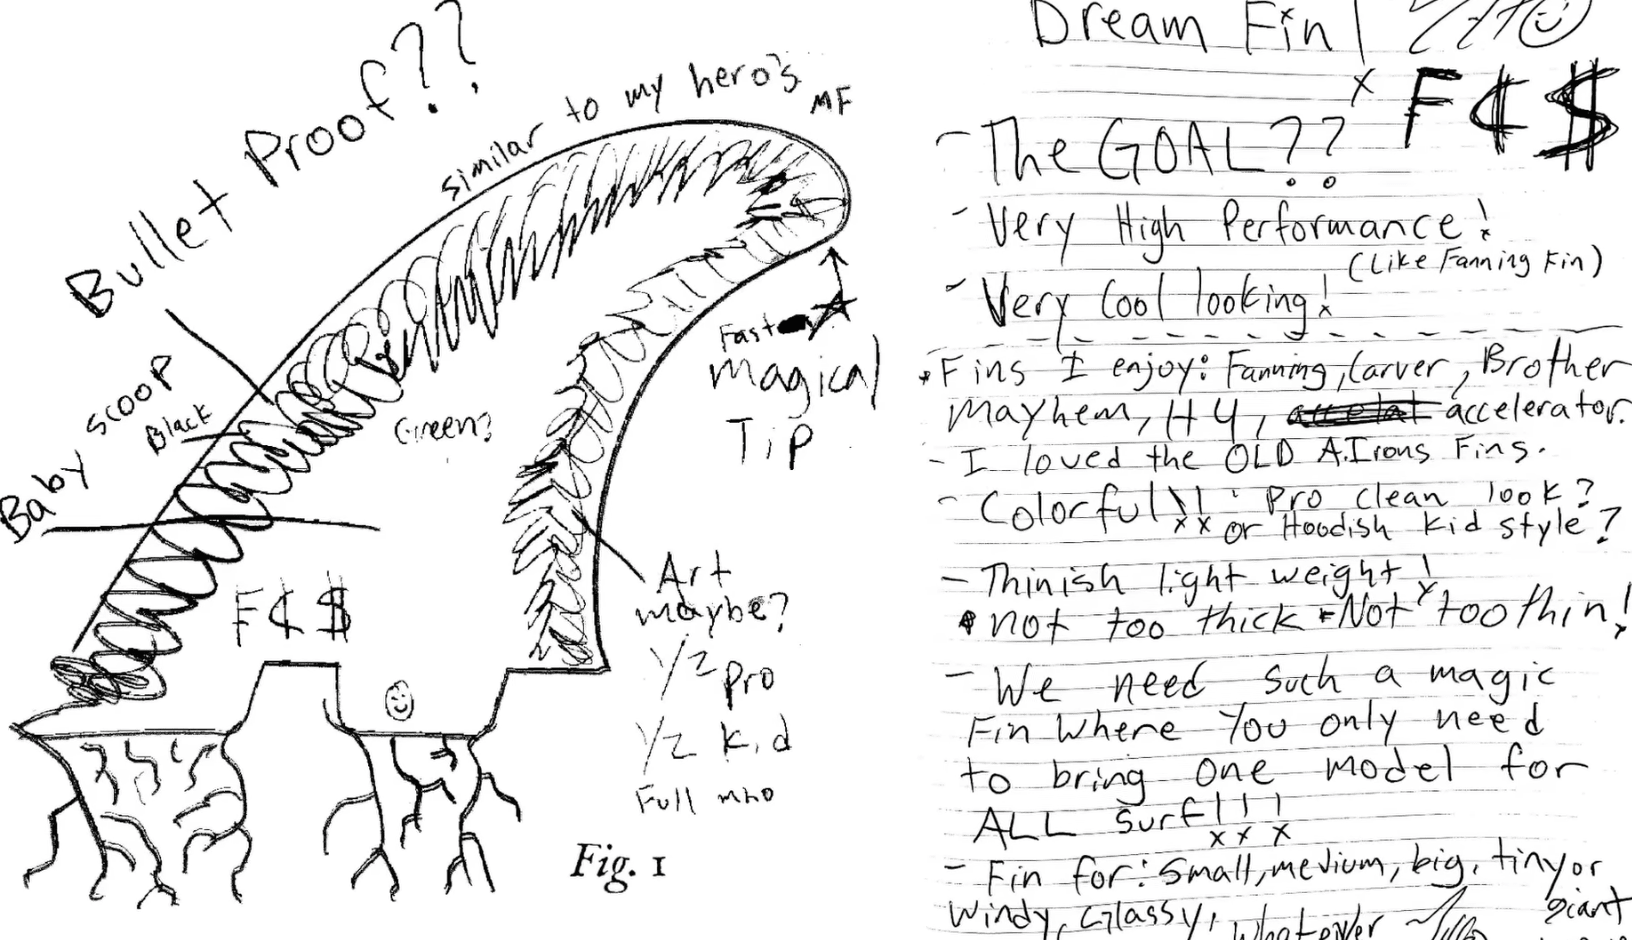 Bullet Proof??
similar to my hero's
MF
Baby scoop
Black
Green?
Fast
Magical
Tip
F¢$
Art
maybe?
1/2 pro
1/2 kid
Full
Fig. 1
Dream Fin!
F¢$
- The GOAL??
- Very High Performance!
(Like Fanning Fin)
- Very Cool looking!
• Fins I enjoy: Fanning, Carver, Brother
Mayhem, H4, accelerator.
- I loved the OLD A.Irons Fins.
- Colorful!! Pro clean look?
or Hoodish kid style?
- Thinish light weight!
• not too thick • Not too thin!
- We need such a magic
Fin where you only need
to bring one model for
ALL surf!!!
- Fin for: small, medium, big, tiny or
giant
windy, Glassy, whatever